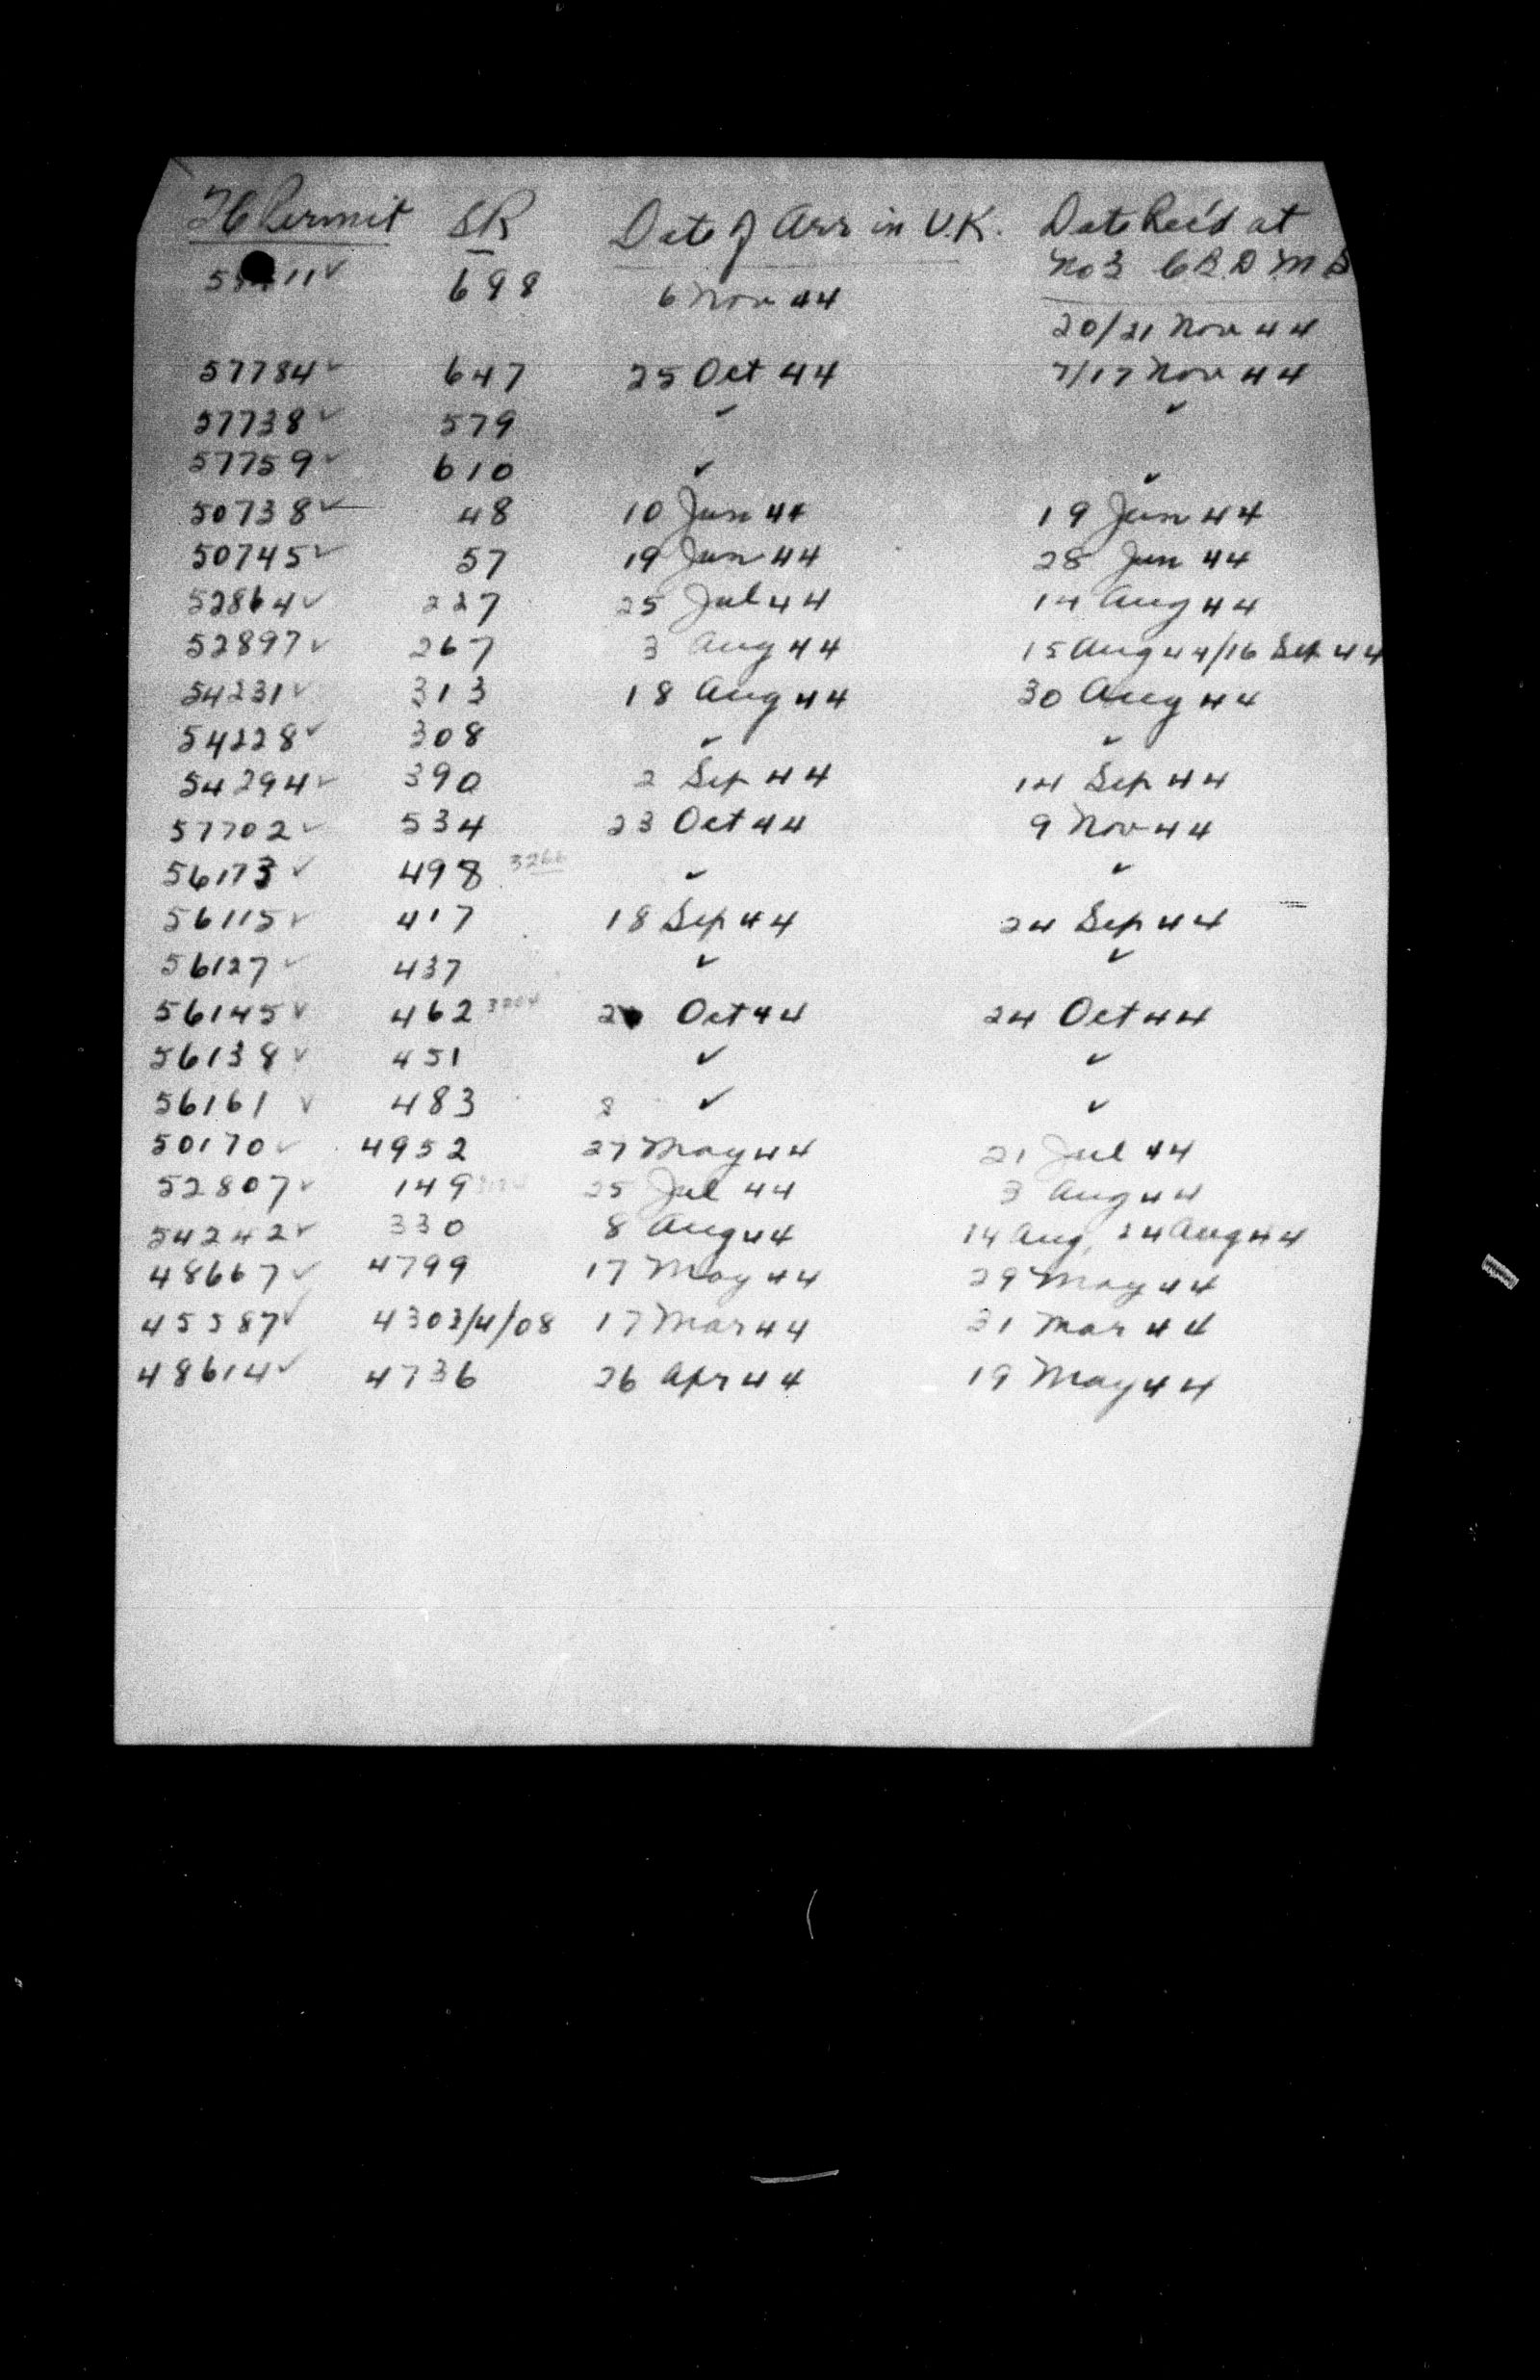 TC Permit SR Date of Arr in U.K. Date Rec'd at
No 3 C B D M S
11 ✓ 698 6 Nov 44
20/21 Nov 44
57784 ✓ 647 25 Oct 44 7/17 Nov 44
57738 ✓ 579 ✓ ✓
57759 ✓ 610 ✓ ✓
50738 ✓ 48 10 Jun 44 19 Jun 44
50745 ✓ 57 19 Jun 44 28 Jun 44
52864 ✓ 227 25 Jul 44 14 Aug 44
52897 ✓ 267 3 Aug 44 15 Aug 44/16 Sep 44
54231 ✓ 313 18 Aug 44 30 Aug 44
54228 ✓ 308 ✓ ✓
54294 ✓ 390 2 Sep 44 14 Sep 44
57702 ✓ 534 23 Oct 44 9 Nov 44
56173 ✓ 498 ✓ ✓
56115 ✓ 417 18 Sep 44 24 Sep 44
56127 ✓ 437 ✓ ✓
56145 ✓ 462 Oct 44 24 Oct 44
56138 ✓ 451 ✓ ✓
56161 ✓ 483 8 ✓ ✓
50170 ✓ 4952 27 May 44 21 Jul 44
52807 ✓ 149 25 Jul 44 3 Aug 44
54242 ✓ 330 8 Aug 44 14 Aug, 24 Aug 44
48667 ✓ 4799 17 May 44 29 May 44
45587 ✓ 4303/4/08 17 Mar 44 31 Mar 44
48614 ✓ 4736 26 Apr 44 19 May 44